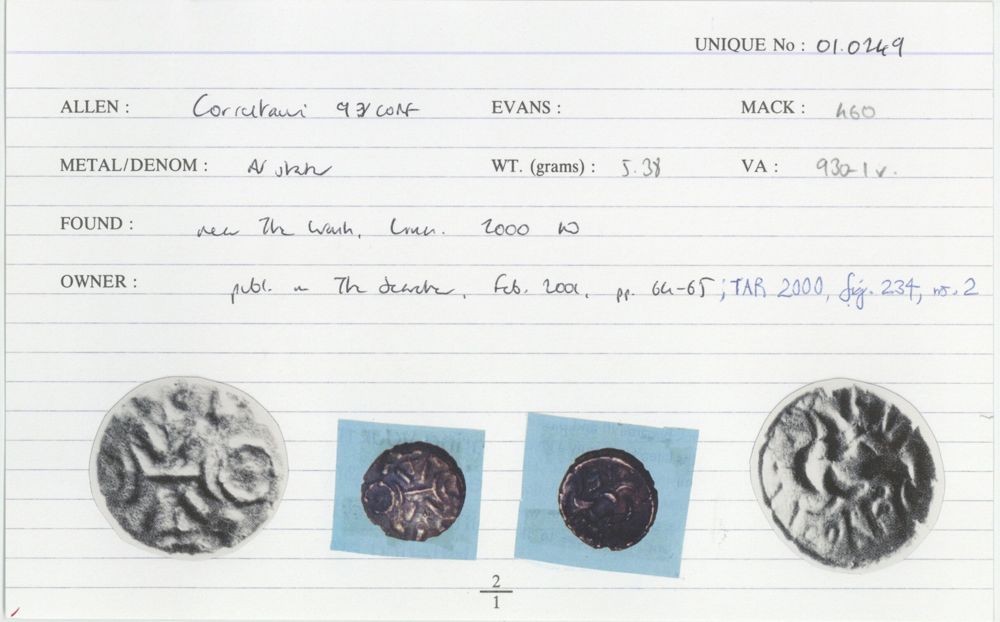 UNIQUE No : 01.0249
ALLEN : Corieltauvi 93 CONF EVANS : MACK : 460
METAL/DENOM : AV stater WT. (grams) : 5.38 VA : 930-1 v.
FOUND : near The Wash, Lincs. 2000
OWNER : publ. in The Searcher, Feb. 2001, pp. 64-65 ; TAR 2000, fig. 234, no. 2
2
1